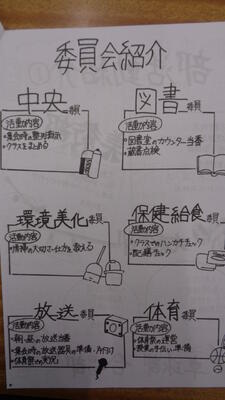 委員会紹介
中央委員
活動内容
・集会時の整列指示
・クラスをまとめる
図書委員
活動内容
・図書室のカウンター当番
・蔵書点検
環境美化委員
活動内容
・清掃の大切さ・仕方を教える
保健給食委員
活動内容
・クラスでのハンカチチェック
・配膳チェック
放送委員
活動内容
・朝・昼の放送当番
・集会時の放送器具の準備・片付け
・体育祭での実況
体育委員
活動内容
・体育祭の運営
・授業の手伝い、準備